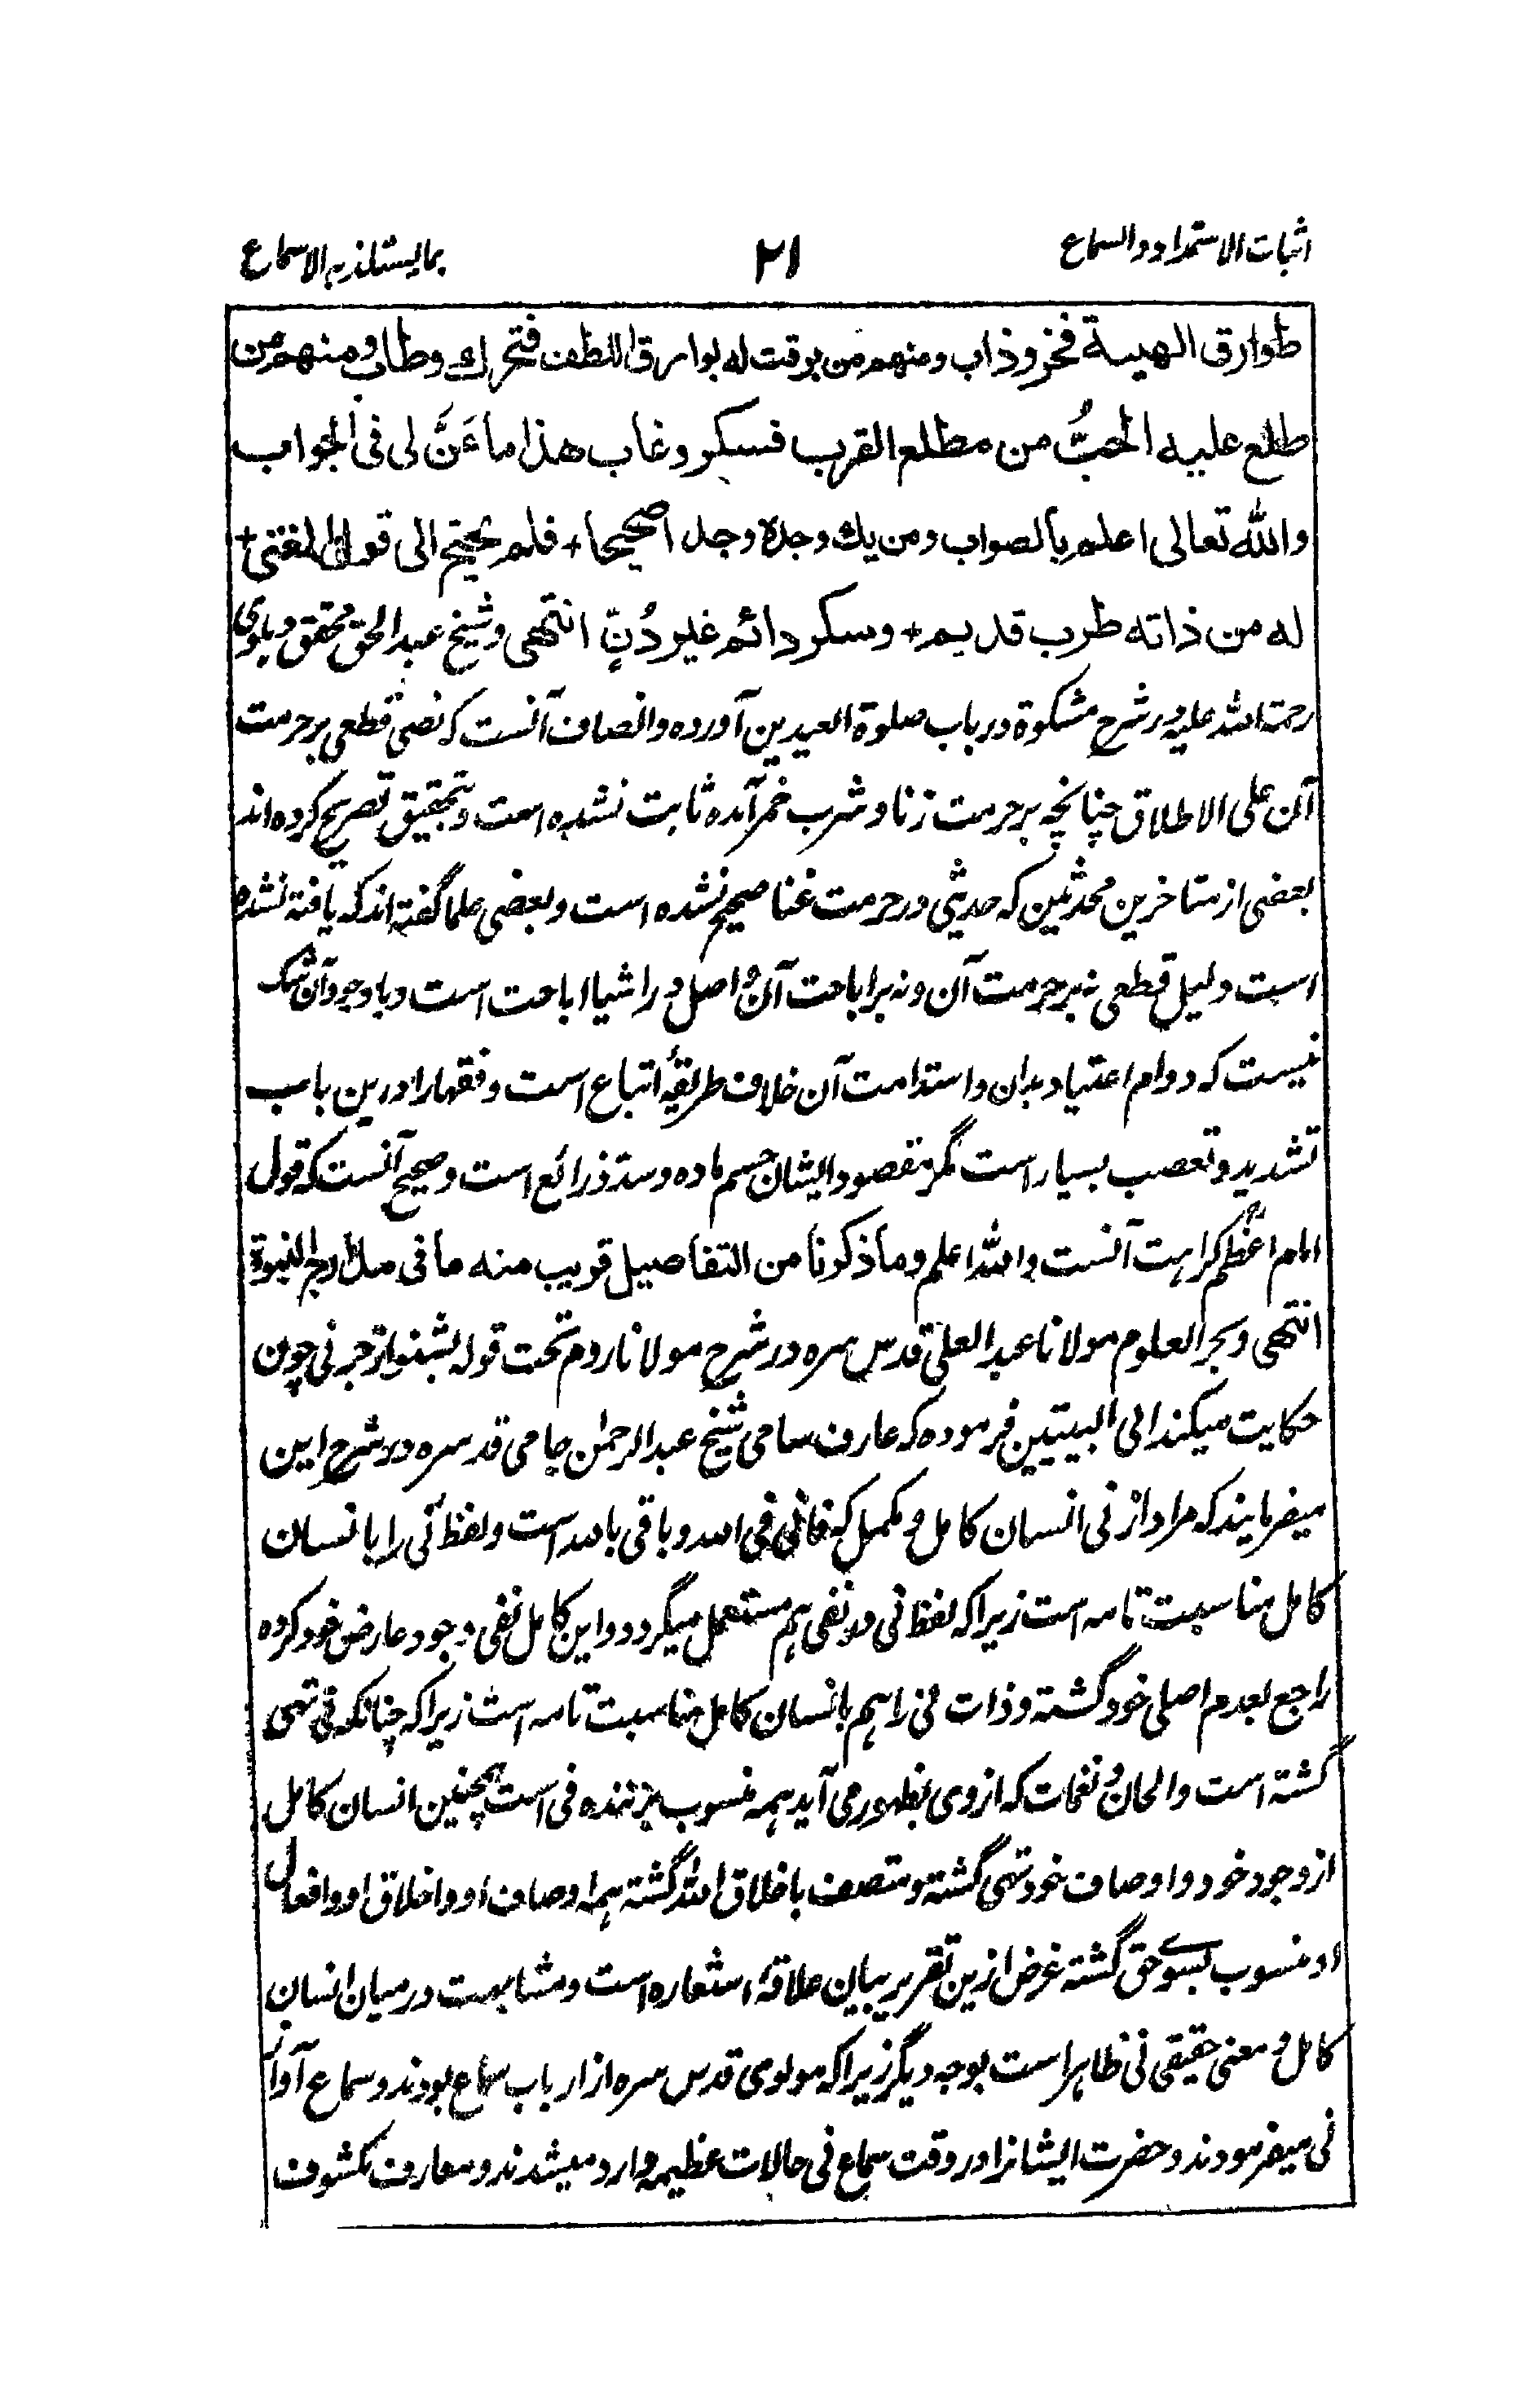 اثبات الاستمداد والسماع ۲۱ بما یستلذ به الاسماع
طوارق الهیبة فخر وذاب ومنهم من برقت له بوارق اللطف فتحرك وطاب ومنهم من
طلع علیه الحبُّ من مطلع القرب فسکر وغاب هذا ما عَنَّ لی فی الجواب
والله تعالی اعلم بالصواب ومن یك وجده وجدا صحیحا + فلم یحتج الی قول المغنی +
له من ذاته طرب قدیم + وسکر دائم غیر دُنٍّ انتهی وشیخ عبدالحق محقق دہلوی
رحمۃ اللہ علیہ در شرح مشکوۃ در باب صلوۃ العیدین آوردہ وانصاف آنست کہ نصی قطعی بر حرمت
آن علی الاطلاق چنانچہ بر حرمت زنا و شرب خمر آمدہ ثابت نشدہ است و بتحقیق تصریح کردہ اند
بعضی از متاخرین محدثین کہ حدیثی در حرمت غنا صحیح نشدہ است و بعضی علما گفتہ اند کہ یافتہ نشدہ
است دلیل قطعی نہ بر حرمت آن و نہ بر اباحت آن و اصل در اشیا اباحت است و باوجود آن شک
نیست کہ دوام اعتیاد بدان و استدامت آن خلاف طریقۂ اتباع است و فقہا را درین باب
تشدید و تعصب بسیار است مگر مقصود ایشان حسم مادہ و سدّ ذرائع است و صحیح آنست کہ قول
امام اعظم کراہت آنست واللہ اعلم وما ذکرنا من التفاصیل قریب منه ما فی مدارج النبوة
انتهی و بحر العلوم مولانا عبدالعلی قدس سرہ در شرح مولانا روم تحت قولہ بشنو از نی چون
حکایت میکند الی البیتین فرمودہ کہ عارف سامی شیخ عبدالرحمٰن جامی قدسرہ در شرح این
میفرمایند کہ مراد از نی انسان کامل و مکمل کہ فانی فی اللہ و باقی باللہ است و لفظ نی را با انسان
کامل مناسبت تامہ است زیرا کہ لفظ نی در نفی ہم مستعمل میگردد و این کامل نفی وجود عارض خود کردہ
راجع بعدم اصلی خود گشتہ و ذات نی را ہم بانسان کامل مناسبت تامہ است زیرا کہ چنانکہ نی تہی
گشتہ است و الحان و نغمات کہ از وی بظہور می آید ہمہ منسوب بزنندہ نی است ہمچنین انسان کامل
از وجود خود و اوصاف خود تہی گشتہ و متصف باخلاق اللہ گشتہ ہمہ اوصاف او و اخلاق او و افعال
او منسوب بسوے حق گشتہ غرض ازین تقریر بیان علاقۂ استعارہ است و مشابہت درمیان انسان
کامل و معنی حقیقی نی ظاہر است بوجہ دیگر زیرا کہ مولوی قدس سرہ از ارباب سماع بودند و سماع آواز
نی میفرمودند و حضرت ایشانرا در وقت سماع نی حالات عظیمہ وارد میشدند و معارف مکشوف